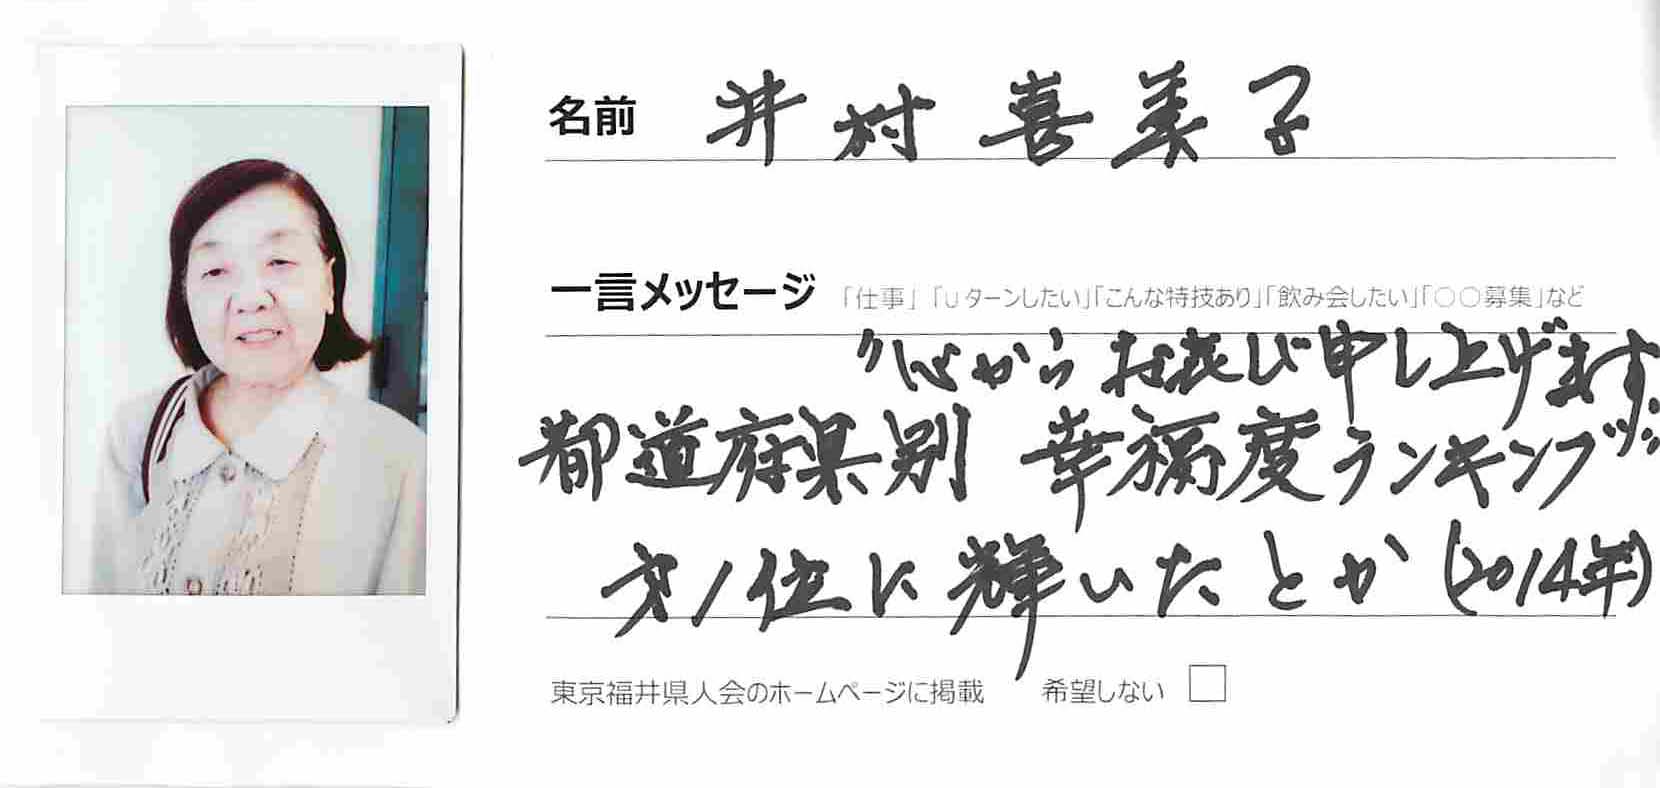 名前 井村喜美子
一言メッセージ 「仕事」「Uターンしたい」「こんな特技あり」「飲み会したい」「○○募集」など
〃心からお慶び申し上げます〃
都道府県別 幸福度ランキング
才1位に輝いたとか(2014年)
東京福井県人会のホームページに掲載 希望しない □